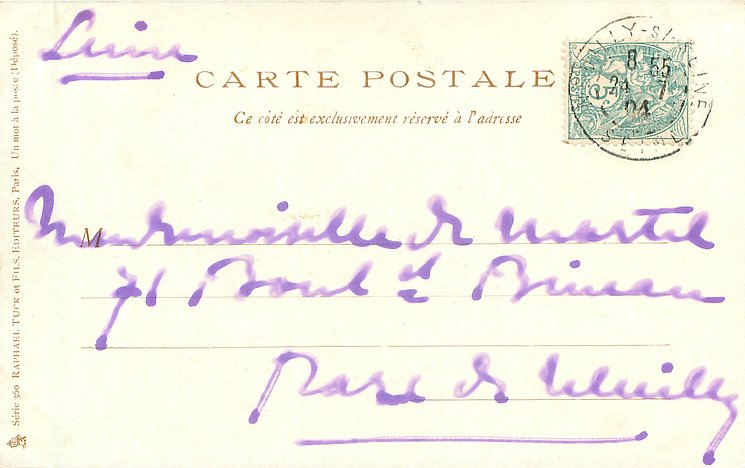 Seine
CARTE POSTALE
Ce côté est exclusivement réservé à l'adresse
8 55
24 7
04
M
Mademoiselle de Martel
71 Bould Bineau
Parc de Neuilly
Série 360 RAPHAEL TUCK et FILS, EDITEURS, Paris, Un mot à la poste (Déposé).